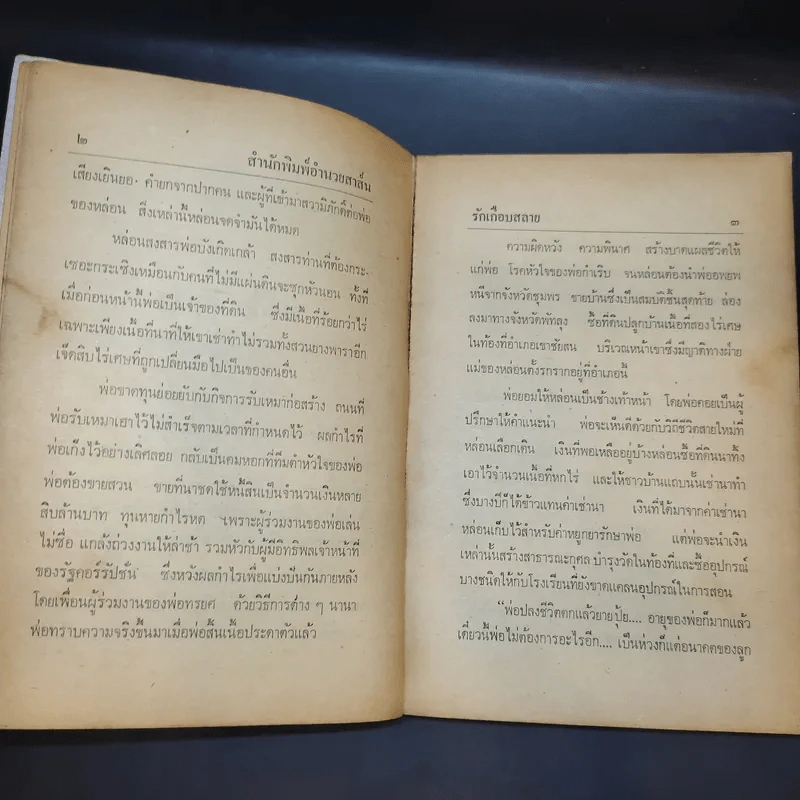 ๒
สำนักพิมพ์อำนวยสาส์น
เสียงเยินยอ คำยกจากปากคน และผู้ที่เข้ามาสวามิภักดิ์ต่อพ่อ
ของหล่อน สิ่งเหล่านี้หล่อนจดจำมันได้หมด
หล่อนสงสารพ่อบังเกิดเกล้า สงสารท่านที่ต้องกระ-
เซอะกระเซิงเหมือนกับคนที่ไม่มีแผ่นดินจะซุกหัวนอน ทั้งที่
เมื่อก่อนหน้านี้พ่อเป็นเจ้าของที่ดิน ซึ่งมีเนื้อที่ร้อยกว่าไร่
เฉพาะเพียงเนื้อที่นาที่ให้เขาเช่าทำไม่รวมทั้งสวนยางพาราอีก
เจ็ดสิบไร่เศษที่ถูกเปลี่ยนมือไปเป็นของคนอื่น
พ่อขาดทุนย่อยยับกับกิจการรับเหมาก่อสร้าง ถนนที่
พ่อรับเหมาเอาไว้ไม่สำเร็จตามเวลาที่กำหนดไว้ ผลกำไรที่
พ่อเก็งไว้อย่างเลิศลอย กลับเป็นคมหอกที่ทิ่มตำหัวใจของพ่อ
พ่อต้องขายสวน ขายที่นาชดใช้หนี้สินเป็นจำนวนเงินหลาย
สิบล้านบาท ทุนหายกำไรหด เพราะผู้ร่วมงานของพ่อเล่น
ไม่ซื่อ แกล้งถ่วงงานให้ล่าช้า รวมหัวกับผู้มีอิทธิพลเจ้าหน้าที่
ของรัฐคอร์รัปชั่น ซึ่งหวังผลกำไรเพื่อแบ่งปันกันภายหลัง
โดยเพื่อนผู้ร่วมงานของพ่อทรยศ ด้วยวิธีการต่าง ๆ นานา
พ่อทราบความจริงขึ้นมาเมื่อพ่อสิ้นเนื้อประดาตัวแล้ว
รักเกือบสลาย ๓
ความผิดหวัง ความพินาศ สร้างบาดแผลชีวิตให้
แก่พ่อ โรคหัวใจของพ่อกำเริบ จนหล่อนต้องนำพ่ออพยพ
หนีจากจังหวัดชุมพร ขายบ้านซึ่งเป็นสมบัติชิ้นสุดท้าย ล่อง
ลงมาทางจังหวัดพัทลุง ซื้อที่ดินปลูกบ้านเนื้อที่สองไร่เศษ
ในท้องที่อำเภอเขาชัยสน บริเวณหน้าเขาซึ่งมีญาติทางฝ่าย
แม่ของหล่อนตั้งรกรากอยู่ที่อำเภอนี้
พ่อยอมให้หล่อนเป็นช้างเท้าหน้า โดยพ่อคอยเป็นผู้
ปรึกษาให้คำแนะนำ พ่อจะเห็นดีด้วยกับวิถีชีวิตสายใหม่ที่
หล่อนเลือกเดิน เงินที่พอเหลืออยู่บ้างหล่อนซื้อที่ดินนาทิ้ง
เอาไว้จำนวนเนื้อที่หกไร่ และให้ชาวบ้านแถบนั้นเช่านาทำ
ซึ่งบางปีก็ได้ข้าวแทนค่าเช่านา เงินที่ได้มาจากค่าเช่านา
หล่อนเก็บไว้สำหรับค่าหยูกยารักษาพ่อ แต่พ่อจะนำเงิน
เหล่านั้นสร้างสาธารณะกุศล บำรุงวัดในท้องที่และซื้ออุปกรณ์
บางชนิดให้กับโรงเรียนที่ยังขาดแคลนอุปกรณ์ในการสอน
“พ่อปลงชีวิตตกแล้วยายปุ้ย.... อายุของพ่อก็มากแล้ว
เดี๋ยวนี้พ่อไม่ต้องการอะไรอีก.... เป็นห่วงก็แต่อนาคตของลูก